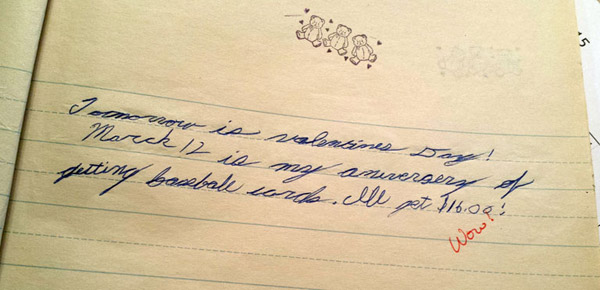 Tomorrow is valentines Day!
March 12 is my aniversery of
getting baseball cards. Ill get $16.00!
Wow!
15